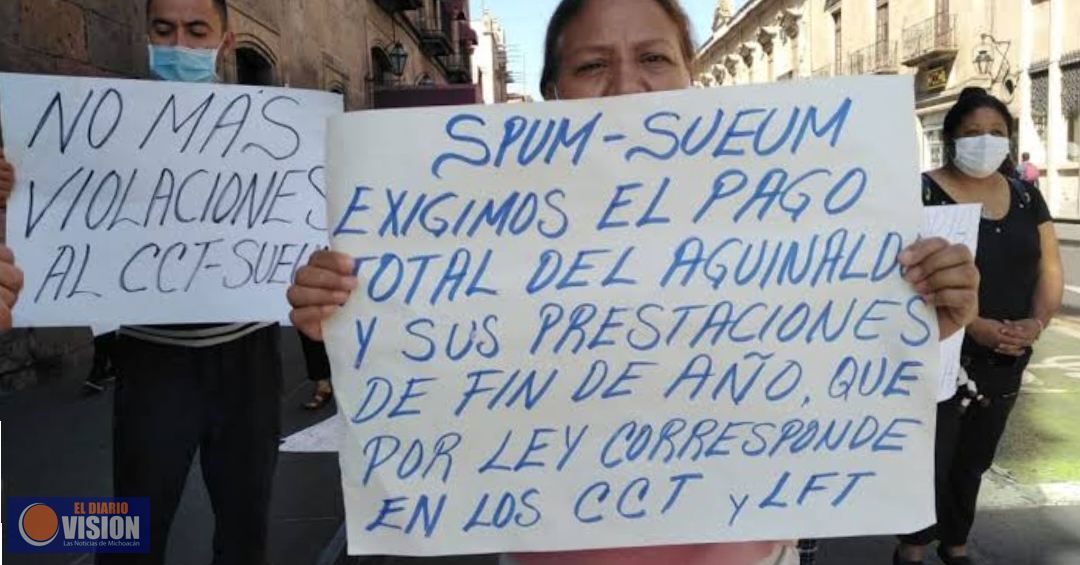 NO MÁS
VIOLACIONES
AL CCT-SUEU
SPUM-SUEUM
EXIGIMOS EL PAGO
TOTAL DEL AGUINALDO
Y SUS PRESTACIONES
DE FIN DE AÑO, QUE
POR LEY CORRESPONDE
EN LOS CCT y LFT
EL DIARIO
VISION
Las Noticias de Michoacán